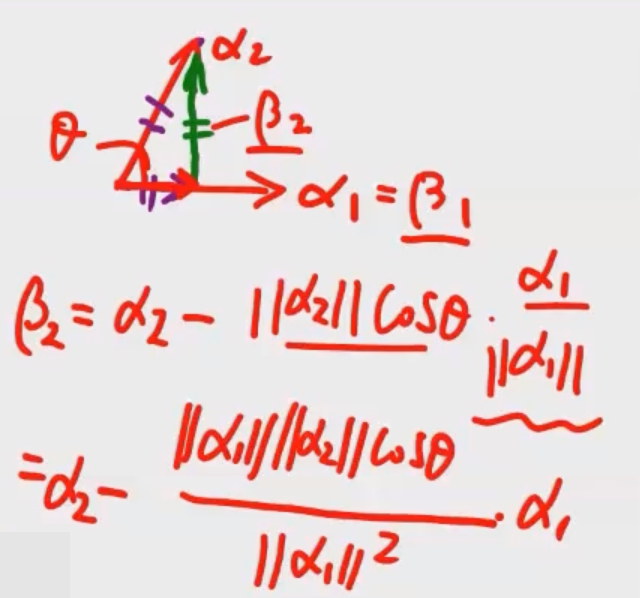 α₂
θ
β₂
α₁ = β₁
β₂ = α₂ - ||α₂|| cosθ · α₁ / ||α₁||
= α₂ - ||α₁|| ||α₂|| cosθ / ||α₁||² · α₁